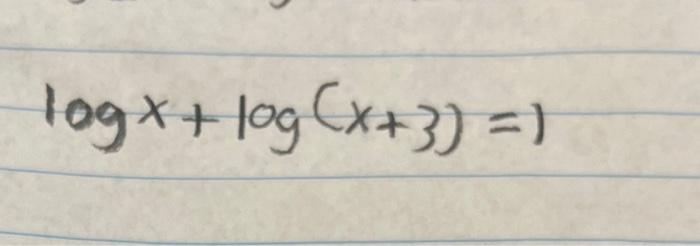 log x + log (x+3) = 1